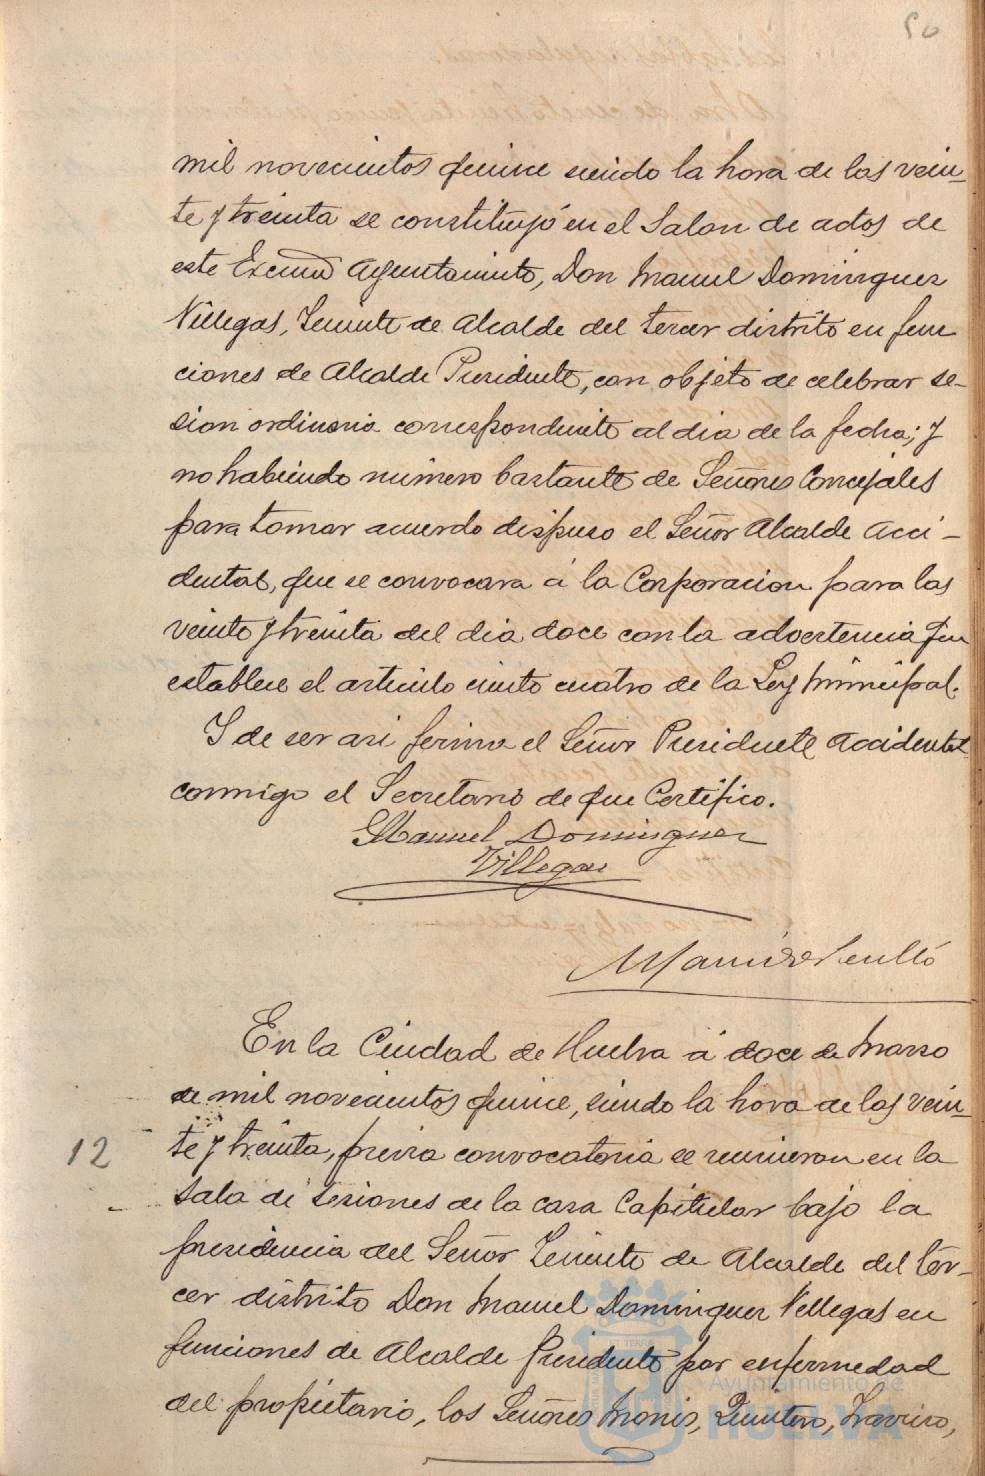 50
mil novecientos quince siendo la hora de las vein-
te y treinta se constituyó en el Salon de actos de
este Excmo Ayuntamiento, Don Manuel Dominguez
Villegas, Teniente de Alcalde del tercer distrito en fun
ciones de Alcalde Presidente, con objeto de celebrar se-
sion ordinaria correspondiente al dia de la fecha; y
no habiendo número bastante de Señores Concejales
para tomar acuerdo dispuso el Señor Alcalde Acci-
dental, que se convocara á la Corporacion para las
veinte y treinta del dia doce con la advertencia que
establece el articulo ciento cuatro de la Ley Municipal.
Y de ser asi firma el Señor Presidente Accidental
conmigo el Secretario de que Certifico.
Manuel Dominguez
Villegas
En la Ciudad de Huelva á doce de Marzo
de mil novecientos quince, siendo la hora de las vein-
12
te y treinta, previa convocatoria se reunieron en la
Sala de sesiones de la casa Capitular bajo la
presidencia del Señor Teniente de Alcalde del ter-
cer distrito Don Manuel Dominguez Villegas en
funciones de Alcalde Presidente por enfermedad
del propietario, los Señores Monis, Quintero,
Ayuntamiento de
HUELVA